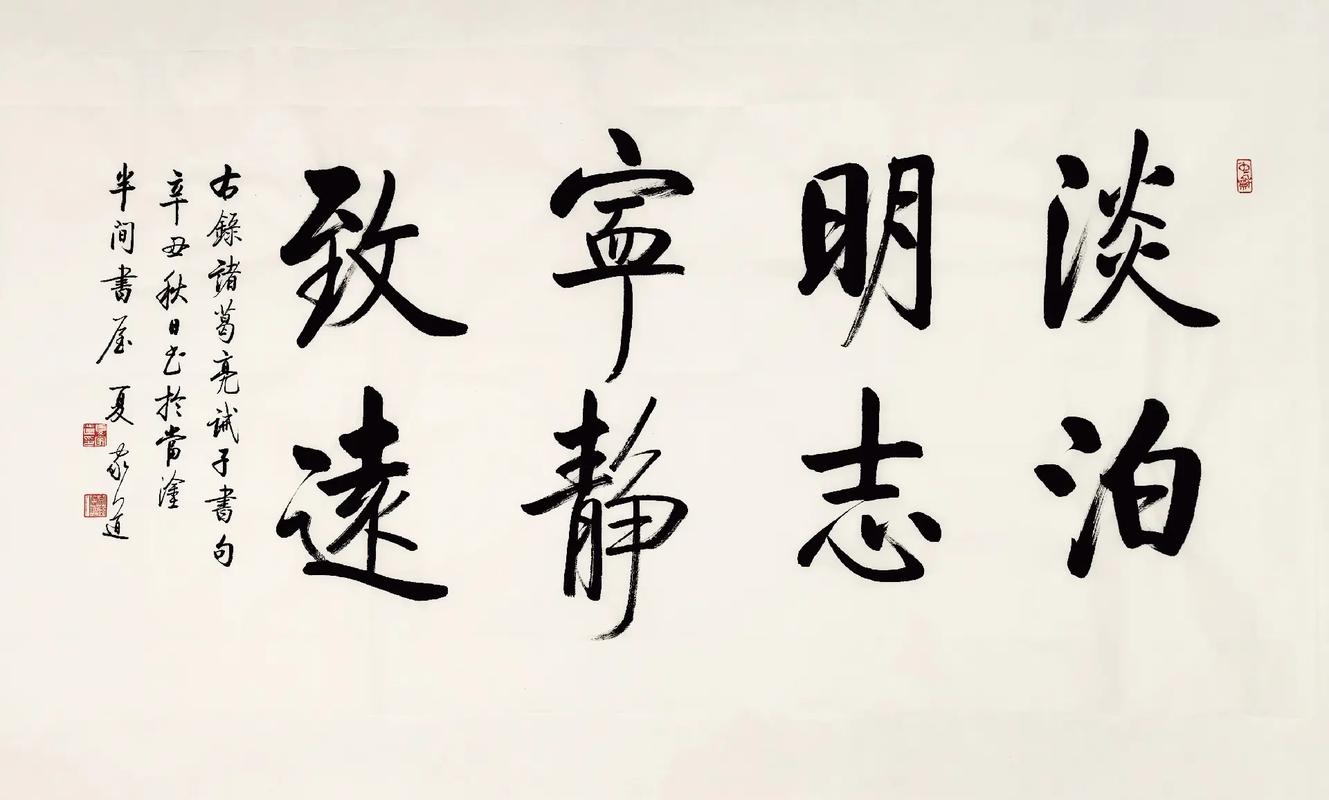 淡泊
明志
寧静
致遠
古錄諸葛亮誡子書句
辛丑秋日书於當塗
半间書屋 夏家道